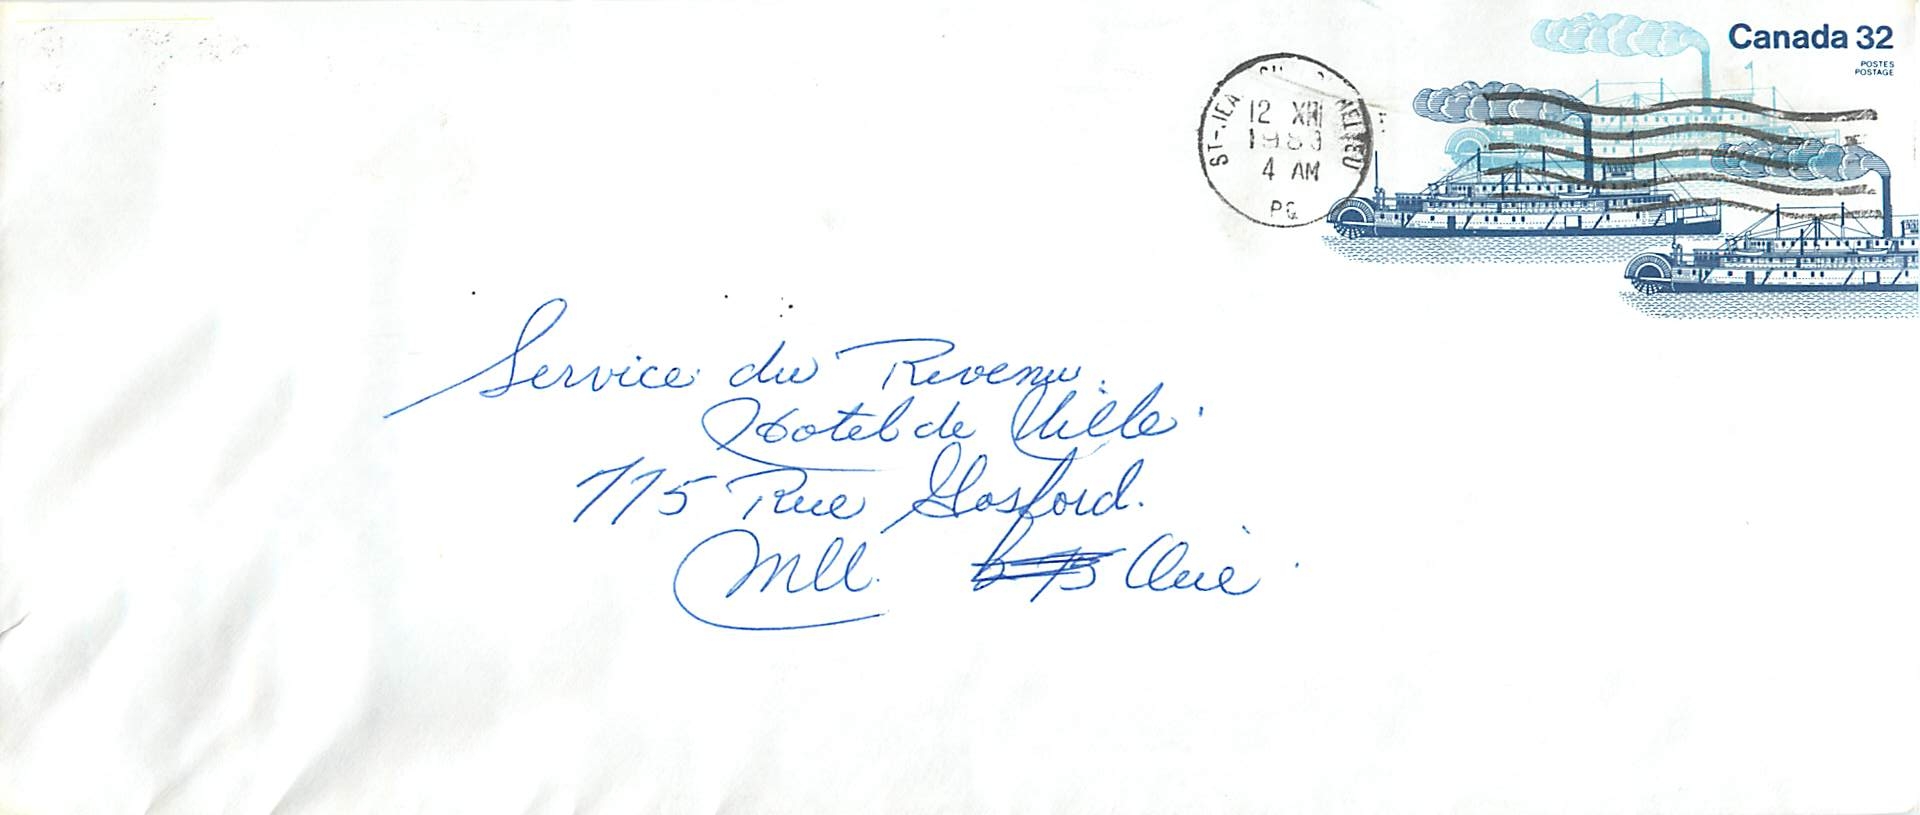 Canada 32
POSTES
POSTAGE
12 XII
1983
4 AM
PQ
Service du Revenu.
Hotel de Ville
775 Rue Gosford.
Mtl.